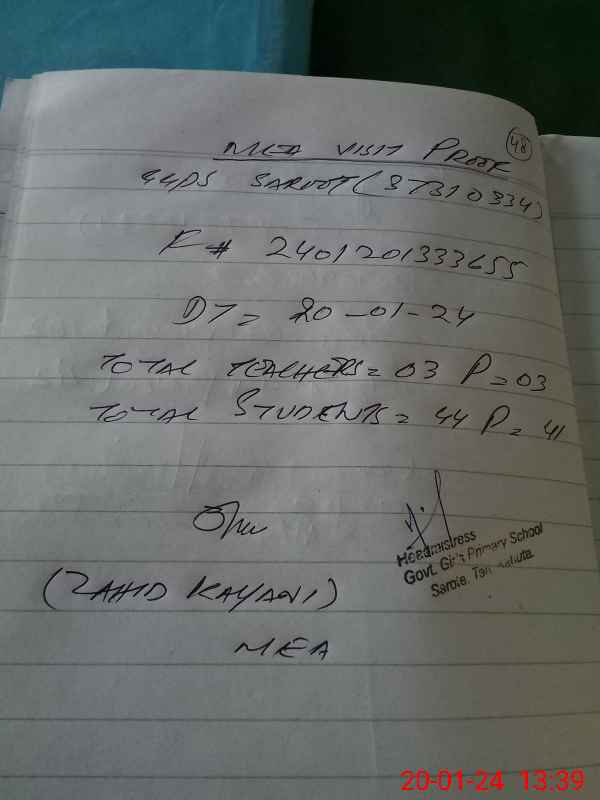 48
MEA VISIT PROOF
GGPS SAROOT (37310334)
F# 2401201333655
DT= 20-01-24
TOTAL TEACHERS= 03 P=03
TOTAL STUDENTS= 44 P= 41
Headmistress
Govt. Girl's Primary School
Sarote, Teh
(ZAHID KAYANI)
MEA
20-01-24 13:39